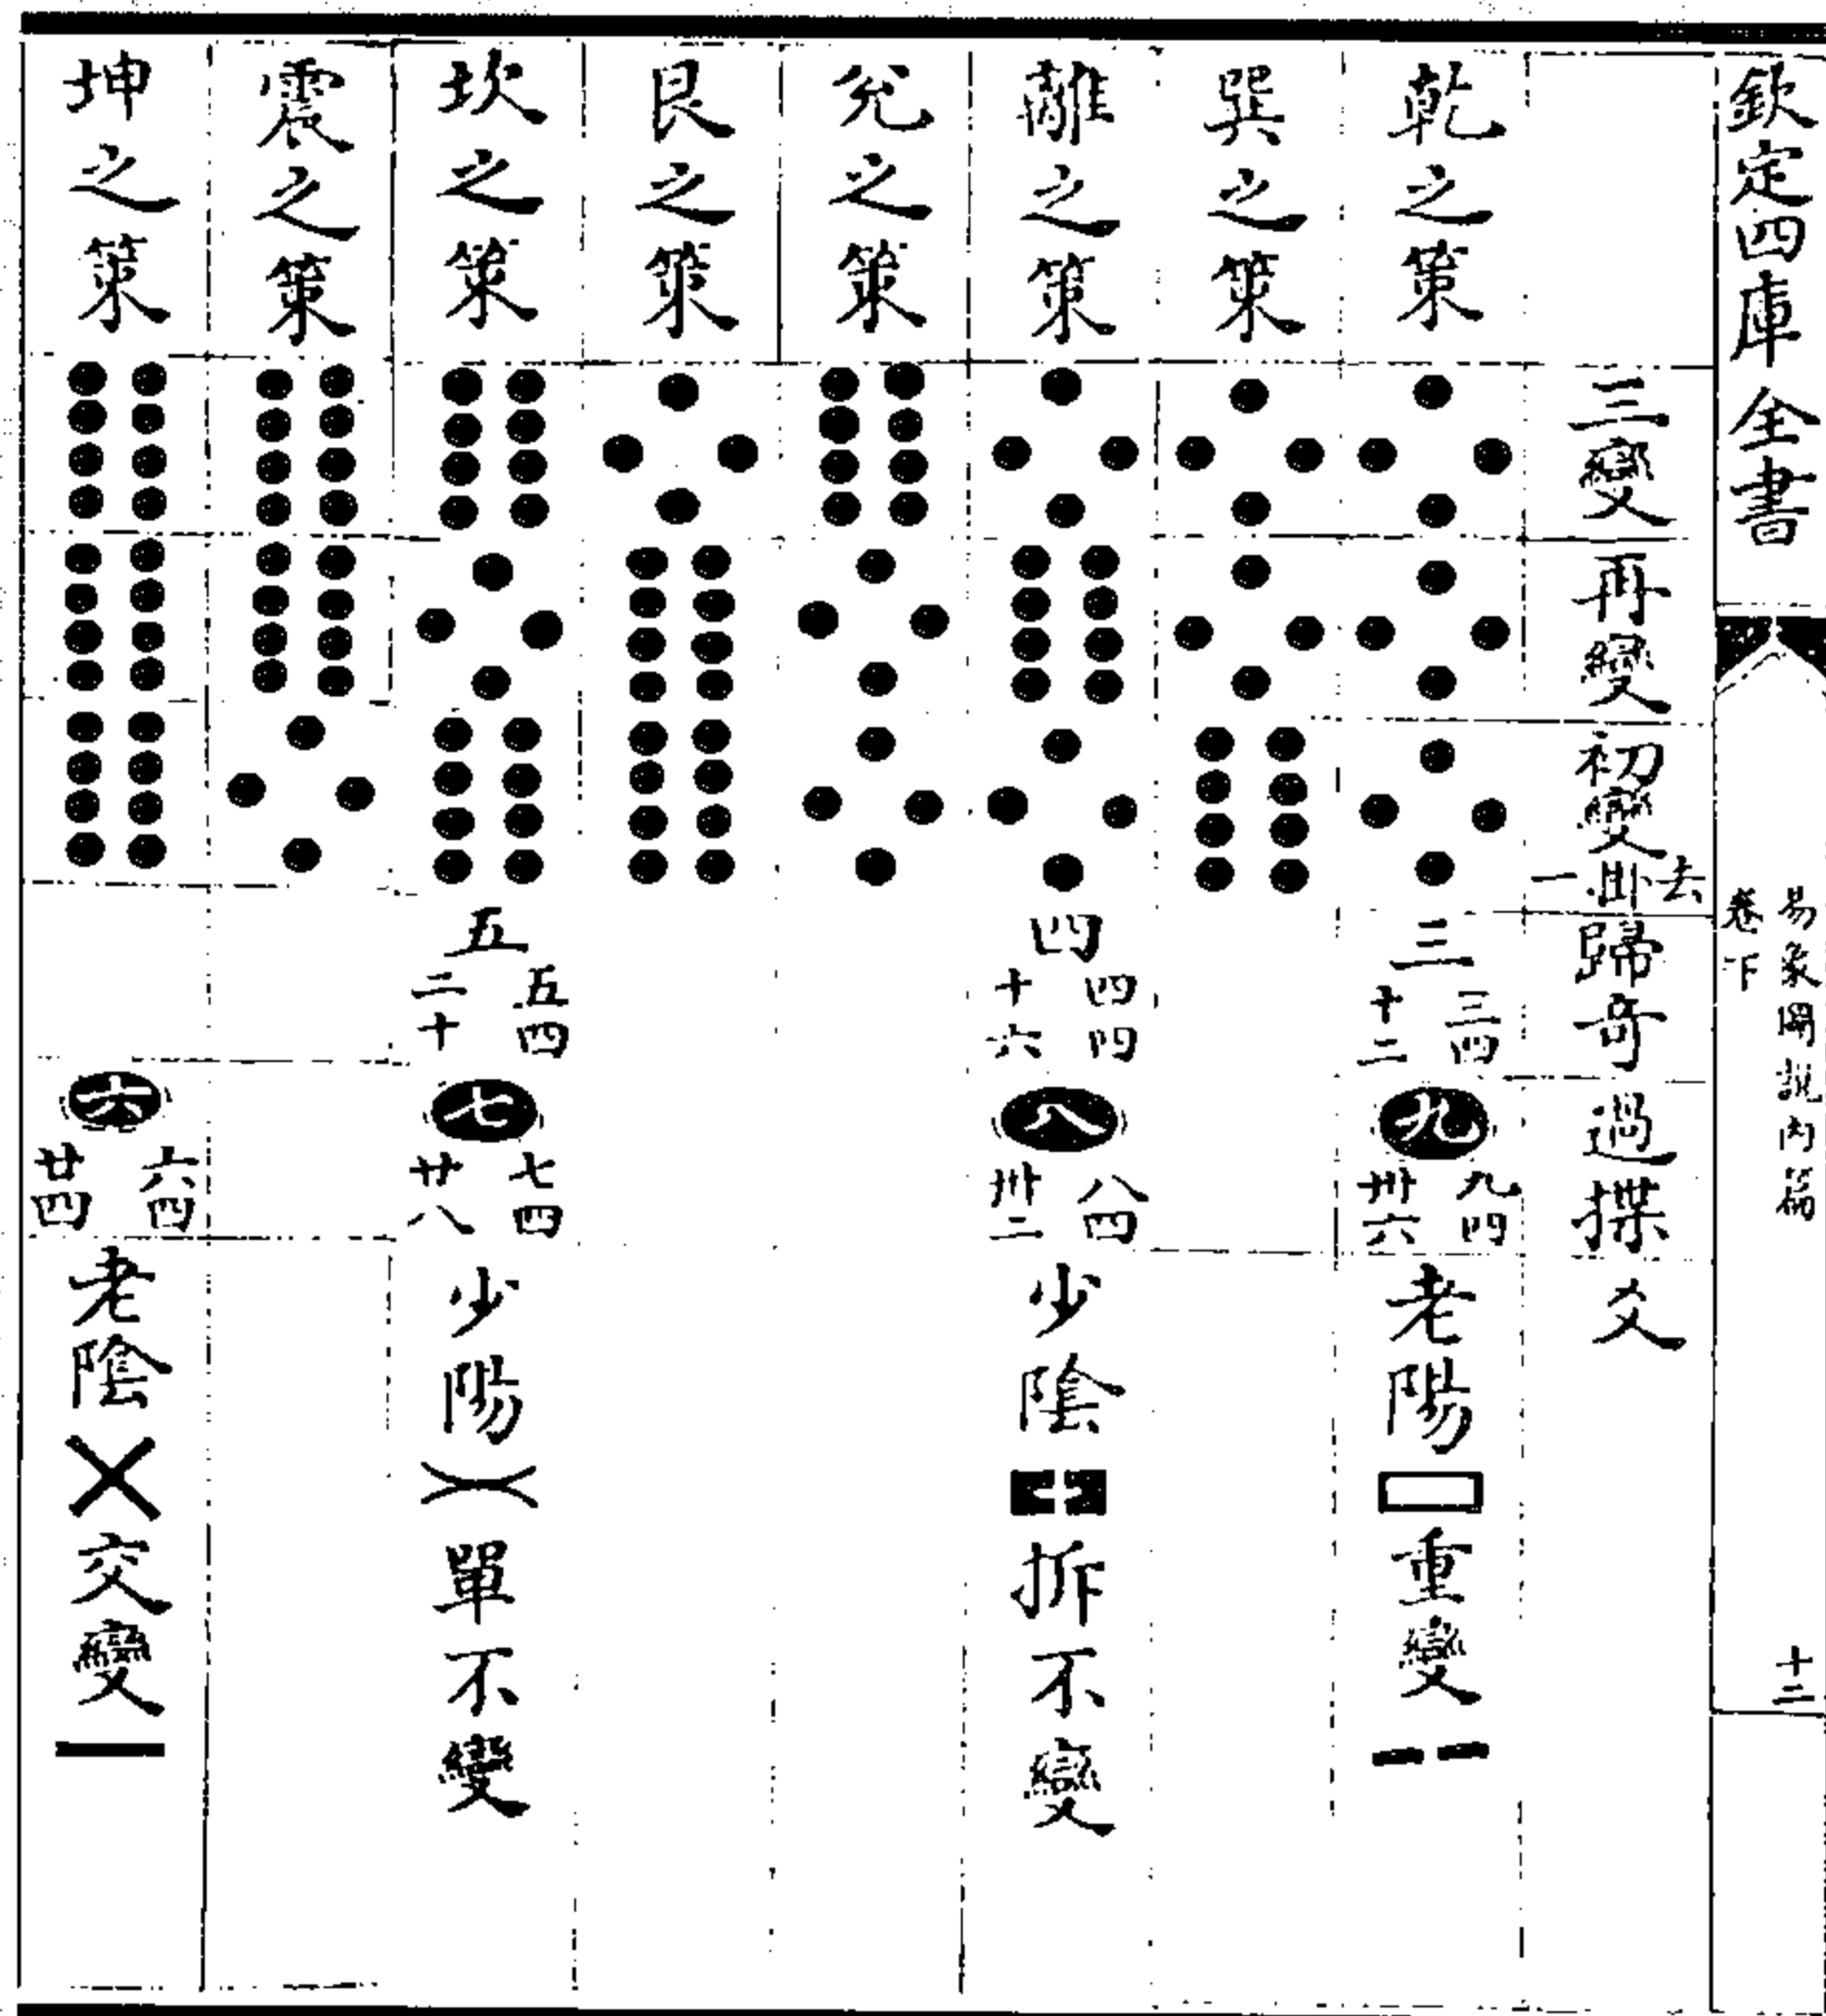 欽定四庫全書
易象圖說內篇
卷下
十三
三變再變初變去掛一歸奇過揲爻
乾之策
三
三四
十二
九
九四
卅六
老陽重變
巽之策
離之策
四
四四
十六
八
八四
卅二
少陰拆不變
兌之策
艮之策
坎之策
五
五四
二十
七
七四
廿八
少陽單不變
震之策
坤之策
六
六四
廿四
老陰交變